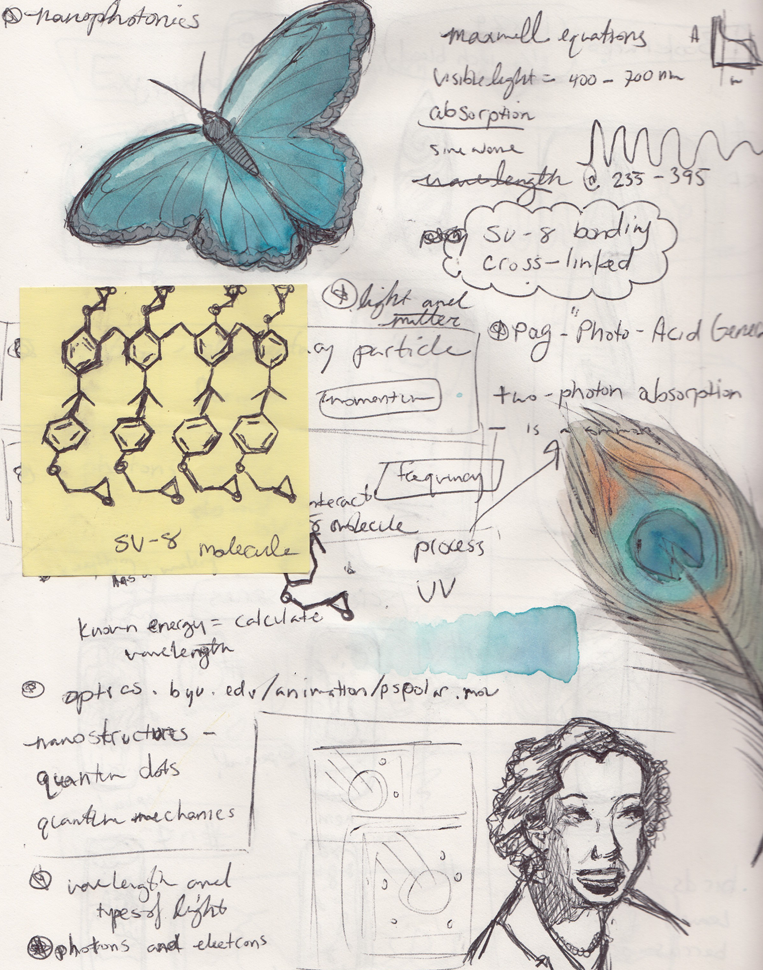 nanophotonics
maxwell equations
A
visible light = 400 - 700 nm
absorption
sine wave
wavelength @ 255 - 395
SU-8 bonding
cross-linked
light and
matter
Pag - "Photo - Acid Gener
particle
momentum
two-photon absorption
- is a
frequency
interact
molecule
process
UV
SU-8 molecule
has
known energy = calculate
wavelength
optics.byu.edu/animation/pspolar.mov
nanostructures -
quantum dots
quantum mechanics
wavelength and
types of light
photons and electrons